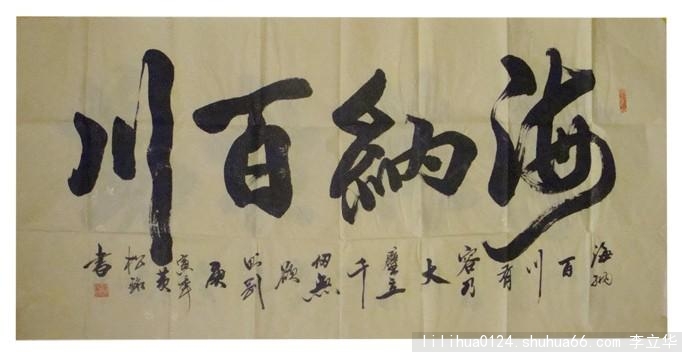 海納百川
海納百川有容乃大壁立千仞無欲則剛庚寅年黄松書
lilihua0124.shuhua66.com 李立华